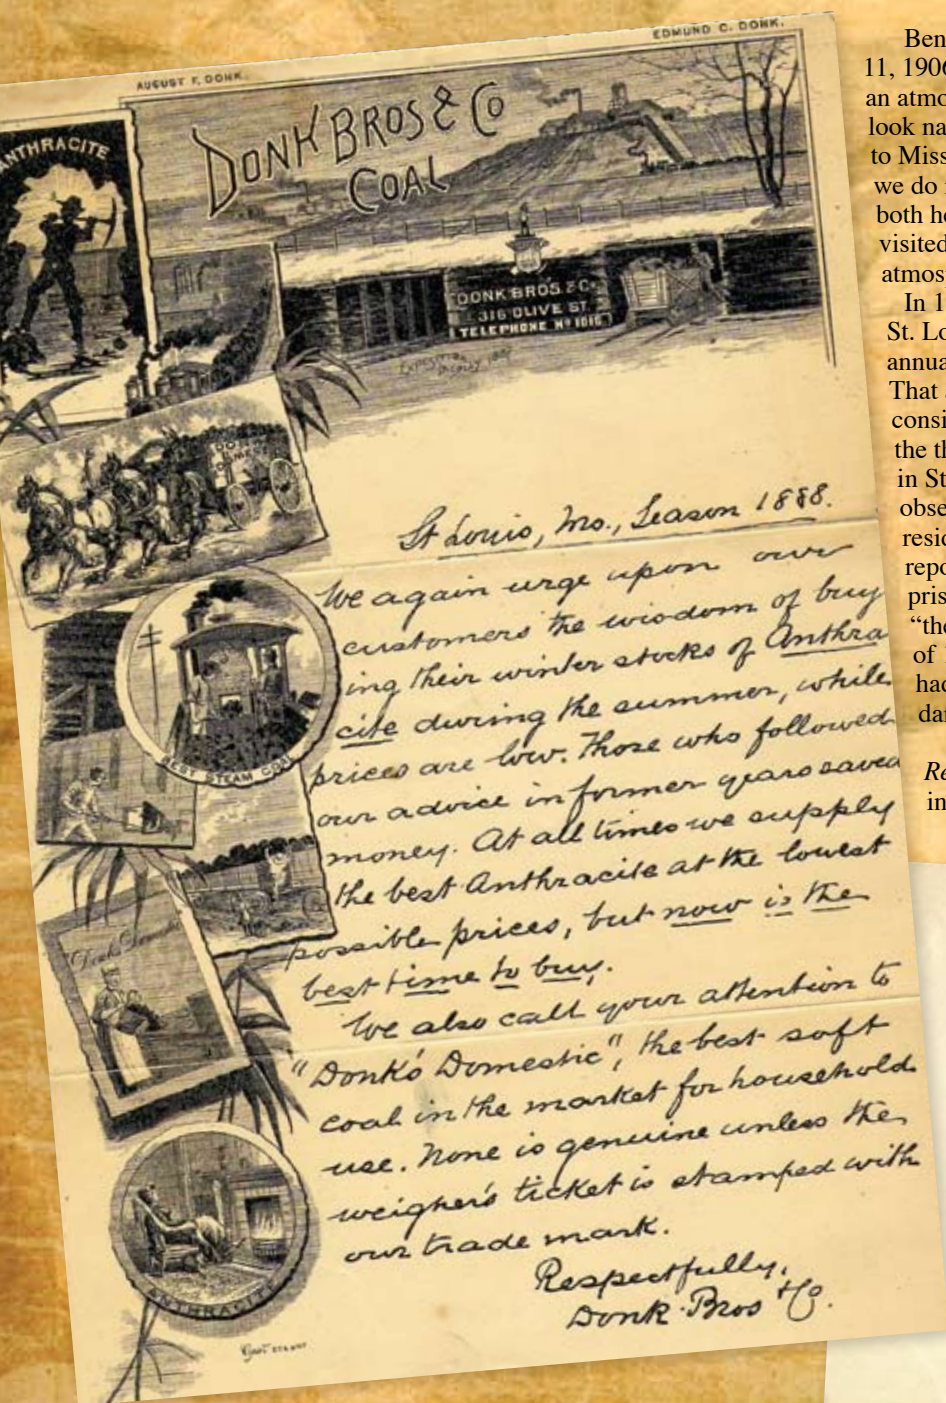 AUGUST F. DONK.
EDMUND C. DONK.
DONK BROS & CO
COAL
ANTHRACITE
DONK BROS. & CO.
316 OLIVE ST.
TELEPHONE No 1016
BEST STEAM COAL
St Louis, Mo., Season 1888.
We again urge upon our
customers the wisdom of buy
ing their winter stocks of Anthra
cite during the summer, while
prices are low. Those who followed
our advice in former years saved
money. At all times we supply
the best Anthracite at the lowest
possible prices, but now is the
best time to buy.
We also call your attention to
"Donk's Domestic", the best soft
coal in the market for household
use. None is genuine unless the
weigher's ticket is stamped with
our trade mark.
Respectfully,
Donk Bros & Co.
ANTHRACITE
Ben
11, 1906
an atmo
look na
to Miss
we do
both ho
visited
atmos
In 1
St. Lo
annua
That
consi
the th
in St
obse
resid
repo
pris
“the
of
had
dar
Re
in